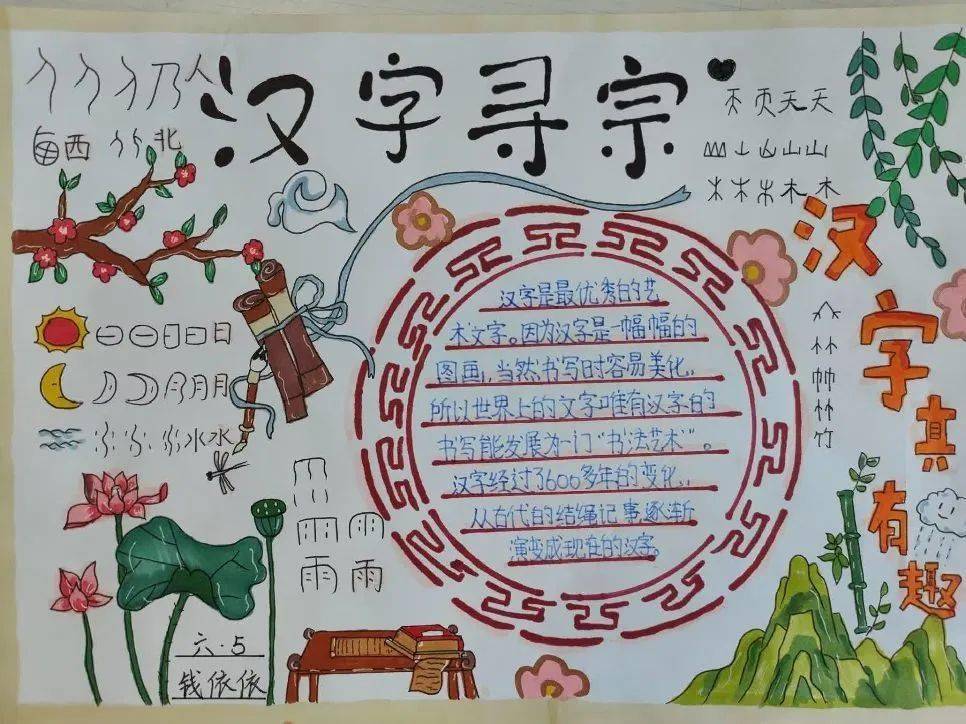 汉字寻宗
人
西 北
天天
山山
木木
日
月月
水水
雨 雨
雨 雨
竹
汉字是最优秀的艺
木文字。因为汉字是一幅幅的
图画,当然书写时容易美化,
所以世界上的文字唯有汉字的
书写能发展为一门“书法艺术”。
汉字经过了600多年的变化,
从古代的结绳记事逐渐
演变成现在的汉字。
汉字真有趣
六·5
钱依依